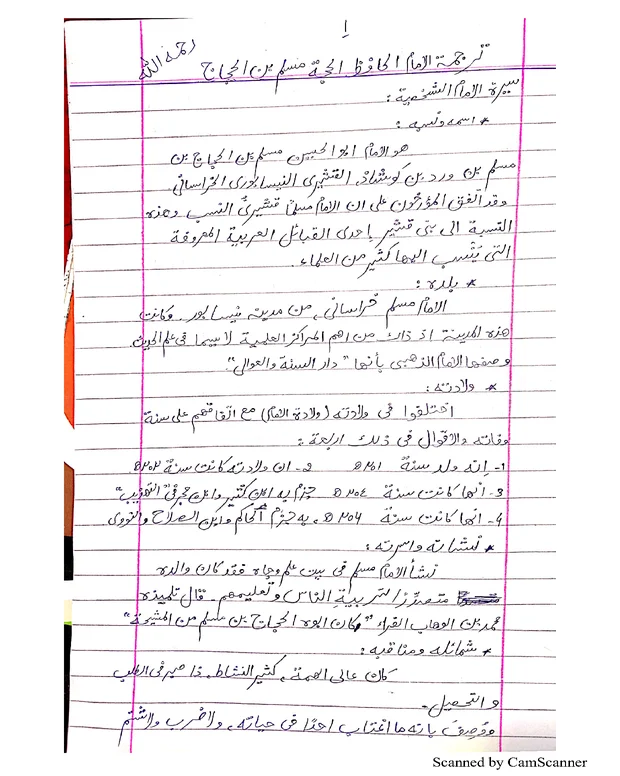 ١
ترجمة الامام الحافظ الحجة مسلم بن الحجاج رحمه الله
سيرة الامام الشخصية :
* اسمه ونسبه :
هو الامام ابو الحسين مسلم بن الحجاج بن
مسلم بن ورد بن كوشاذ القشيرى النيسابورى الخراسانى.
وقد اتفق المؤرخون على ان الامام مسلمًا قشيرىُّ النسب وهذه
النسبة الى بنى قشير إحدى القبائل العربية المعروفة
التى يَنْتسب اليها كثير من العلماء.
* بلده :
الامام مسلم خراسانى، من مدينة نيسابور. وكانت
هذه المدينة اذ ذاك من اهم المراكز العلمية لا سيما فى علم الحديث
وصفها الامام الذهبى بأنها "دار السنة والعوالى".
* ولادته :
اختلفوا فى ولادته (ولادة الامام) مع اتفاقهم على سنة
وفاته والاقوال فى ذلك اربعة :
1- إنه ولد سنةَ ٢٠١ھ 2- ان ولادته كانت سنةَ ٢٠٢ھ
3- أنها كانت سنة ٢٠٤ھ جزم به ابن كثير وابن حجر فى "التهذيب"
4- انها كانت سنة ٢٠٦ھ، به جزم الحاكم وابن الصلاح والنووى
* نشاته واسرته :
نشأ الامام مسلم فى بيت علم وجاه فقد كان والده
متصدرًا لتربية الناس وتعليمهم. قال تلميذه
محمد بن الوهاب الفراء "وكان ابوه الحجاج بن مسلم من المشيخة"
* شمائله ومناقبه :
كان عالى الهمة، كثير النشاط، ذا صبر فى الطلب
والتحصيل.
ووصفَ بانه ما اغتاب احدًا فى حياته، ولا ضرب ولا شتم
Scanned by CamScanner